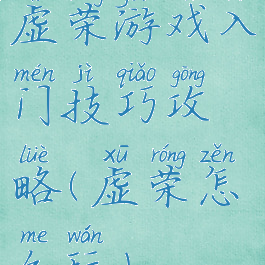 虚荣游戏入
mén jì qiǎo gōng
门技巧攻
lüè xū róng zěn
略(虚荣怎
me wán
么玩)